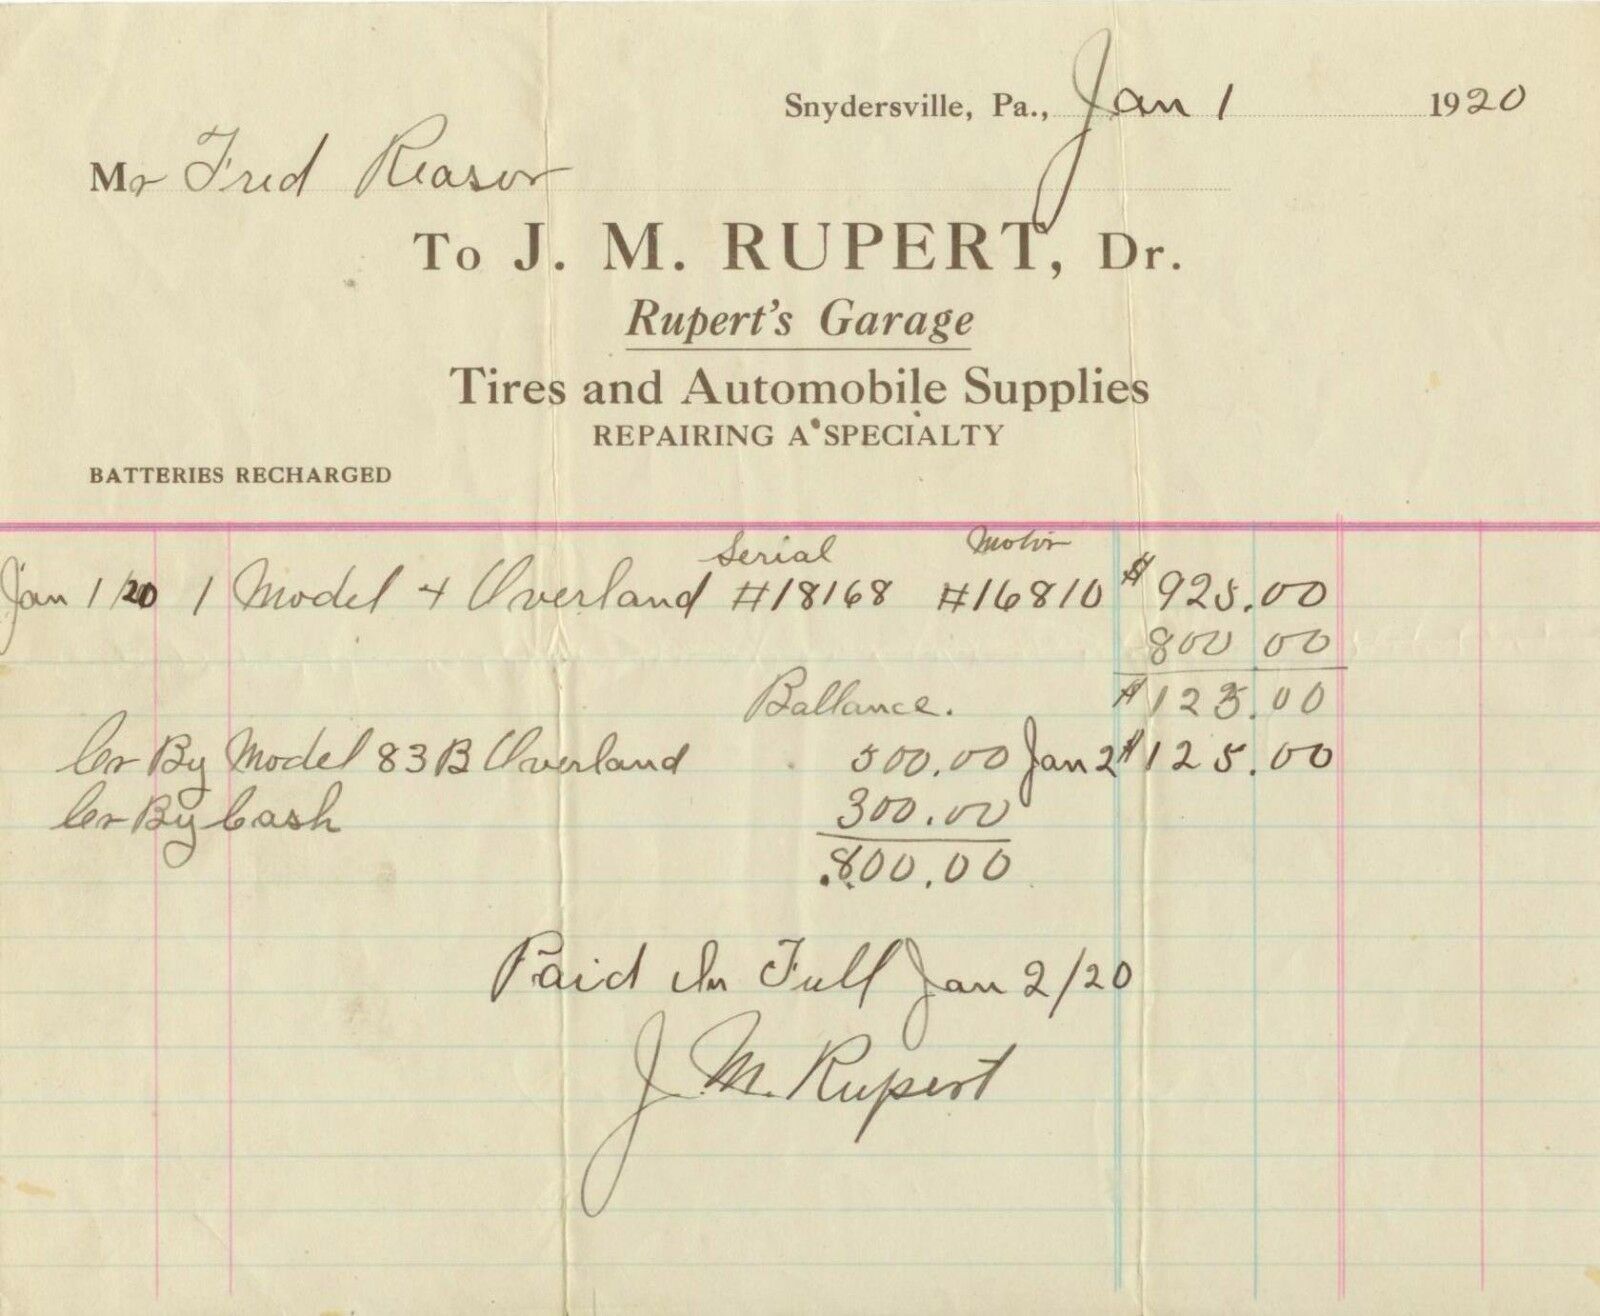 Snydersville, Pa., Jan 1 1920
Mr Fred Reaser
To J. M. RUPERT, Dr.
Rupert's Garage
Tires and Automobile Supplies
REPAIRING A SPECIALTY
BATTERIES RECHARGED
Serial Motor
Jan 1/20 1 Model 4 Overland #18168 #16810 $925.00
800 00
Ballance. $125.00
Cr By Model 83B Overland 500.00 Jan 2 $125.00
Cr By Cash 300.00
800.00
Paid In Full Jan 2/20
J. M. Rupert